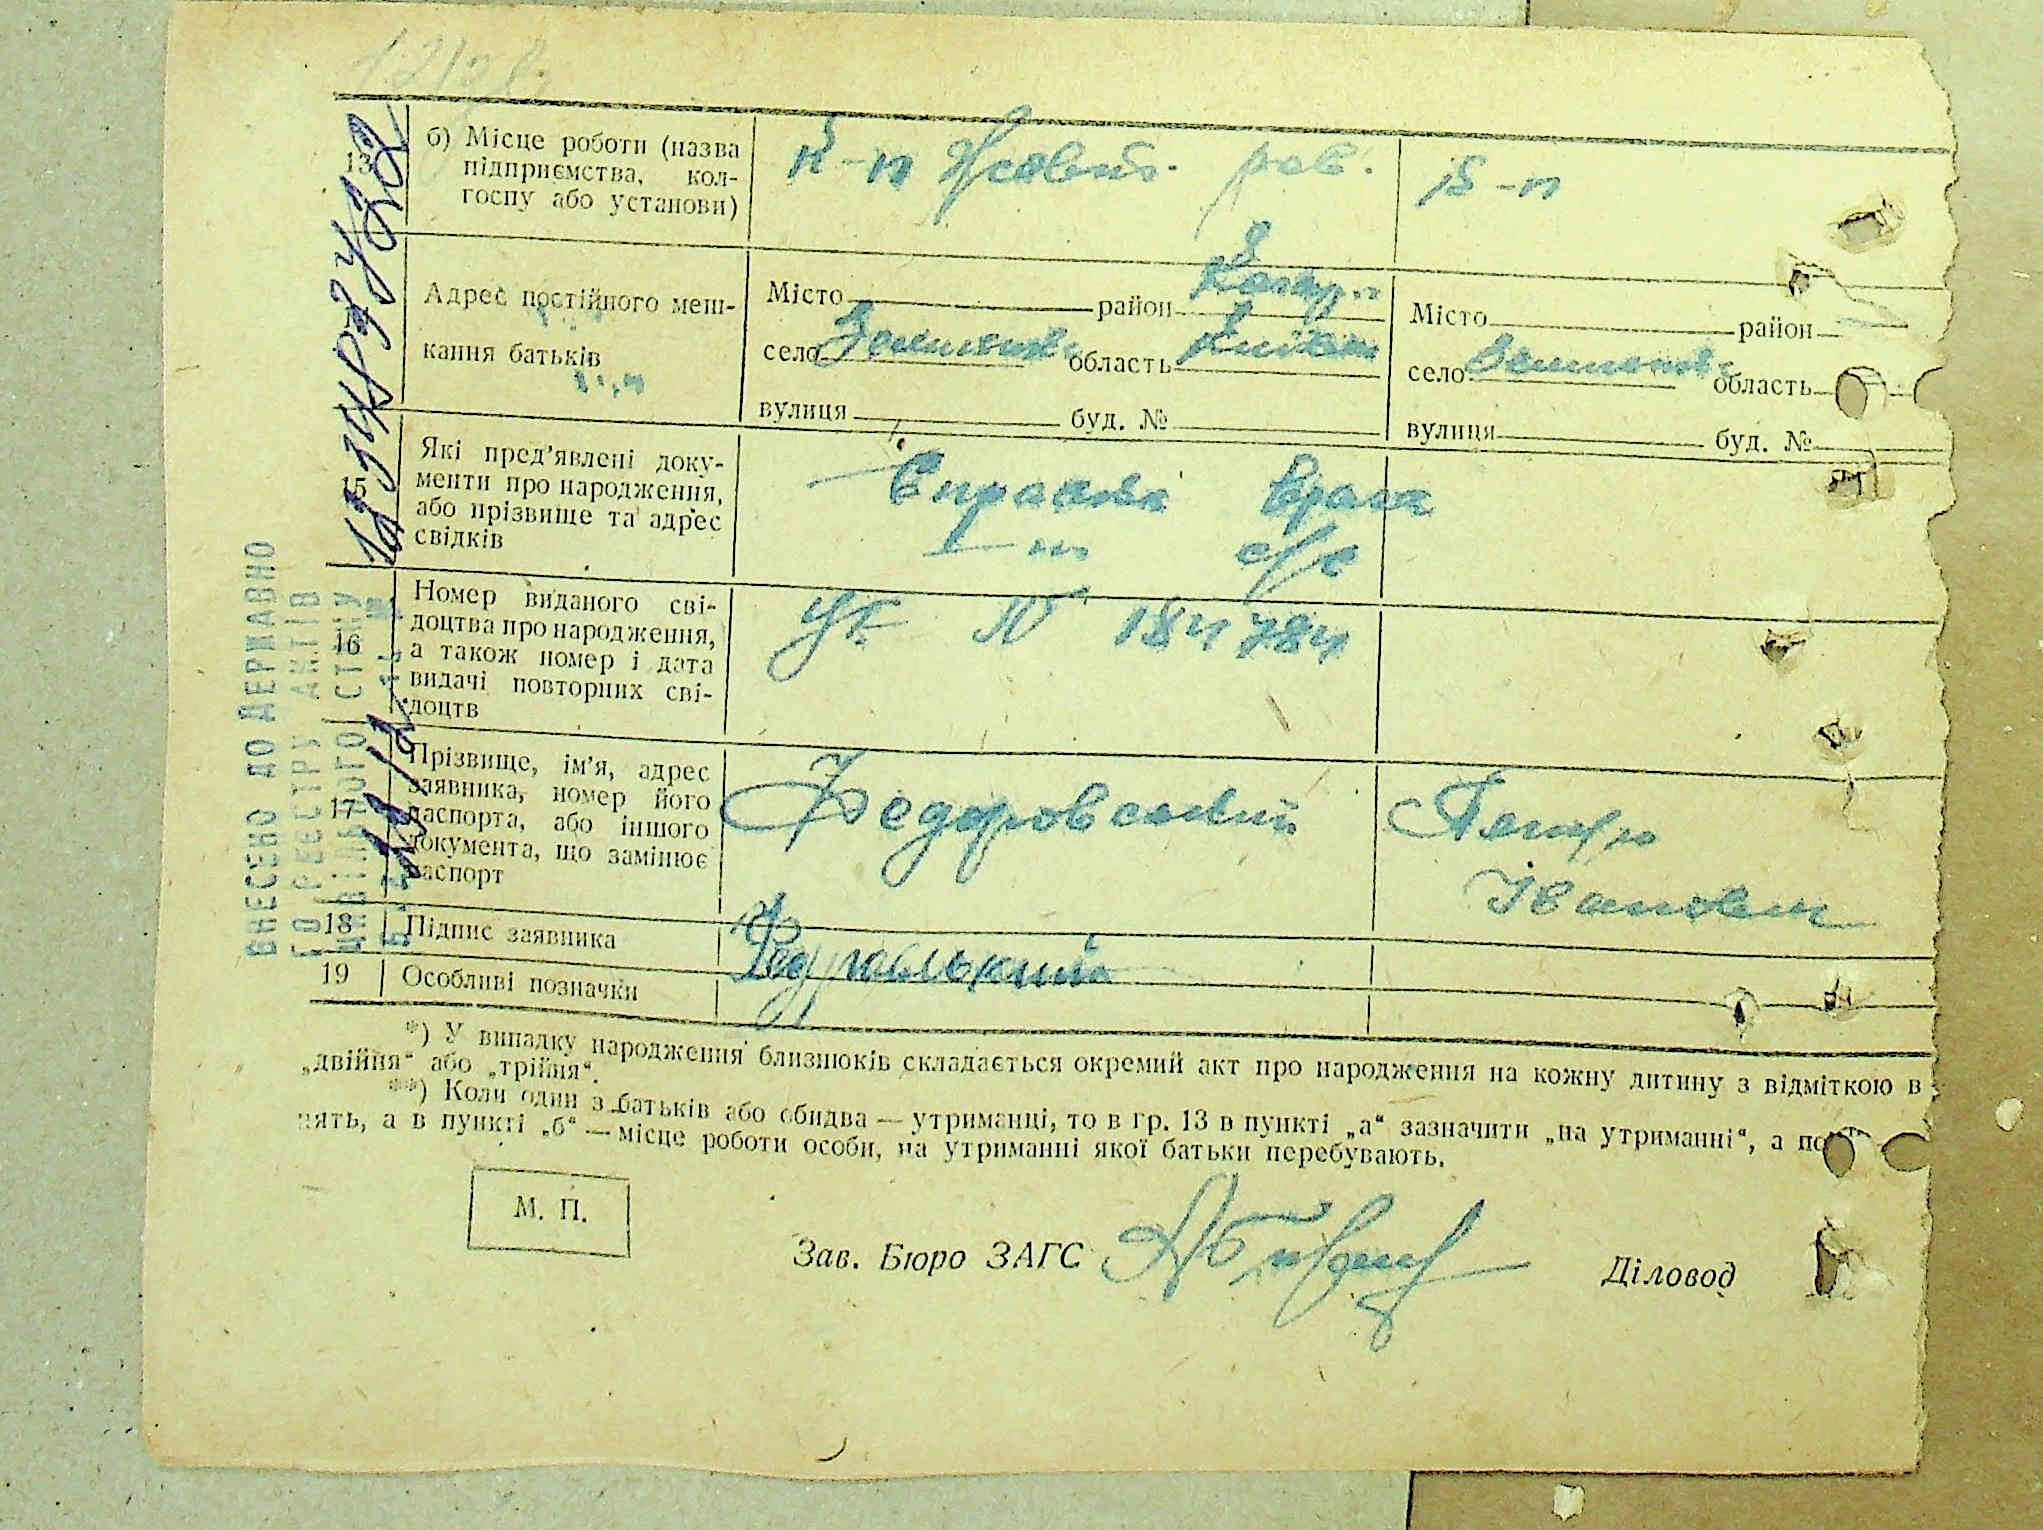 13
б) Місце роботи (назва
підприємства, кол-
госпу або установи)
к-п Жовт. рев.
к-п
Адрес постійного меш-
кання батьків
Місто район
село область
вулиця буд. №
Місто район
село область
вулиця буд. №
15
Які пред'явлені доку-
менти про народження,
або прізвище та адрес
свідків
Справка врача
с/с
16
Номер виданого сві-
доцтва про народження,
а також номер і дата
видачі повторних сві-
доцтв
N 184784
17
Прізвище, ім'я, адрес
заявника, номер його
паспорта, або іншого
документа, що замінює
паспорт
Федоровський Петро
Іванович
18 Підпис заявника
19 Особливі позначки
*) У випадку народження близнюків складається окремий акт про народження на кожну дитину з відміткою в
„двійня“ або „трійня“.
**) Коли один з батьків або обидва — утриманці, то в гр. 13 в пункті „а“ зазначити „на утриманні“, а
нять, а в пункті „б“ — місце роботи особи, на утриманні якої батьки перебувають.
М. П.
Зав. Бюро ЗАГС
Діловод
ВНЕСЕНО ДО ДЕРЖАВНО
ГО РЕЄСТРУ АКТІВ
ЦИВІЛЬНОГО СТАНУ